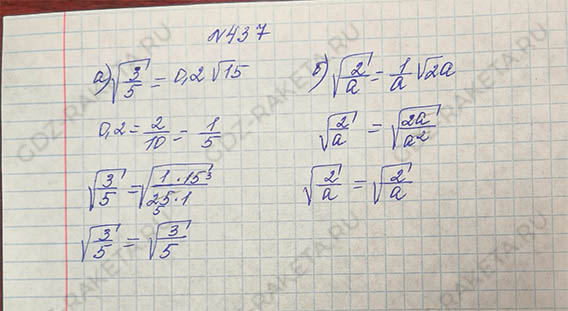 №437
а) √(3/5) = 0,2√15
0,2 = 2/10 = 1/5
√(3/5) = √(1·15³/25₅·1)
√(3/5) = √(3/5)
б) √(2/a) = 1/a √2a
√(2/a) = √(2a/a²)
√(2/a) = √(2/a)
GDZ-RAKETA.RU
GDZ-RAKETA.RU
GDZ-RAKETA.RU
GDZ-RAKETA.RU